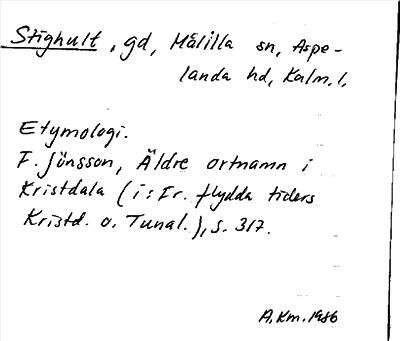 Stighult, gd, Målilla sn, Aspe-
landa hd, Kalm. l,
Etymologi.
F. Jönsson, Äldre ortnamn i
Kristdala (i: Fr. flydda tiders
Kristd. o. Tunal.), s. 317.
A. Km. 1986